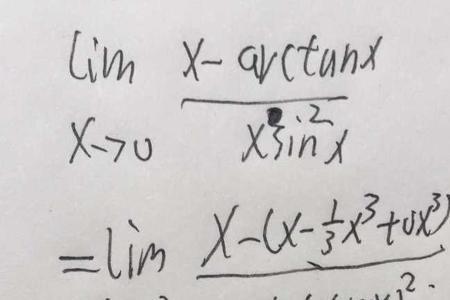 lim x - arctanx
x→0 x sin²x
= lim x - (x - 1/3 x³ + 0x³)